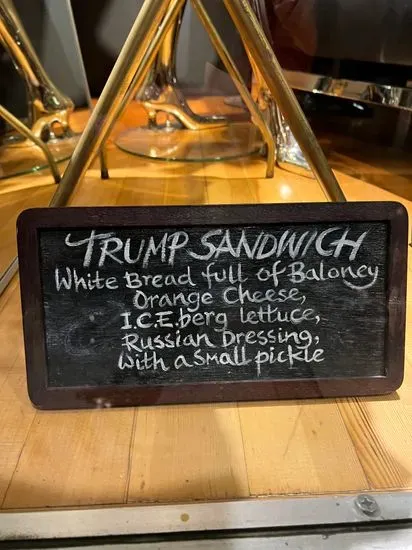 TRUMP SANDWICH
White Bread full of Baloney
Orange Cheese,
I.C.E.berg lettuce,
Russian Dressing,
with a small pickle